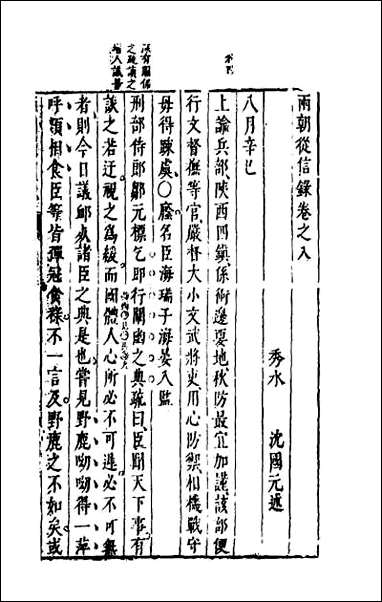 兩朝從信錄卷之八
秀水 沈國元述
八月辛巳
上諭兵部陝西四鎮係衝邊要地秋防最宜加謹該部便
行文督撫等官嚴督大小文武將吏用心防禦相機戰守
毋得踈虞○廕名臣海瑞子海晏入監
刑部侍郎鄒元標乞即行闡幽之典疏曰臣聞天下事有
談之若迂視之為緩而國體人心所必不可遲必不可無
者則今日議卹录諸臣之典是也嘗見野鹿呦呦得一苹
呼類相食臣等皆彈冠食祿不一言及野鹿之不如矣或